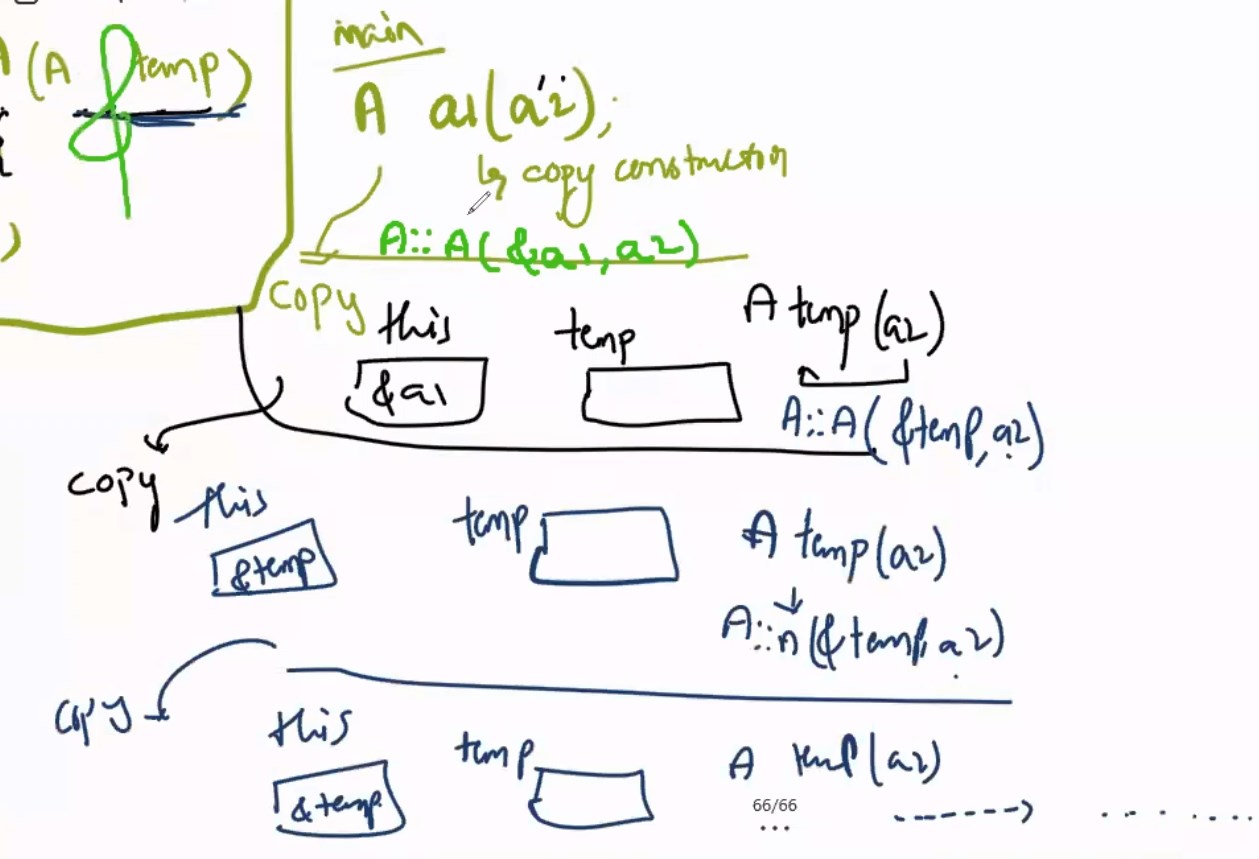 main
A (A &temp)
{
A a1(a2);
↳ copy constructor
)
A::A(&a1, a2)
copy
this temp A temp(a2)
&a1
A::A(&temp, a2)
copy
this temp A temp(a2)
&temp
A::A(&temp, a2)
copy
this temp A temp(a2)
&temp
66/66